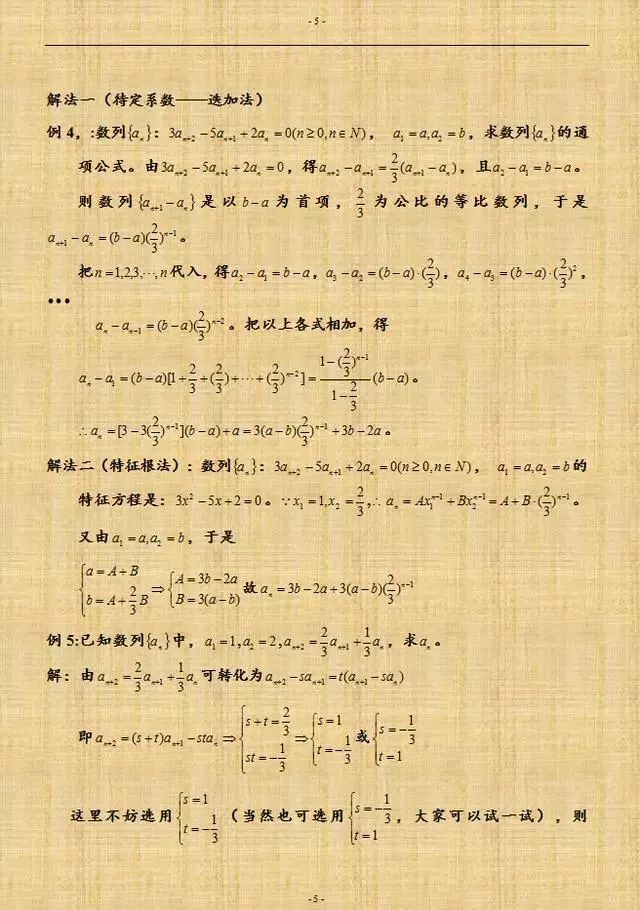 - 5 -
解法一（待定系数——迭加法）
例 4，:数列{aₙ}：3aₙ₊₂−5aₙ₊₁+2aₙ=0(n≥0,n∈N)， a₁=a,a₂=b，求数列{aₙ}的通
项公式。由3aₙ₊₂−5aₙ₊₁+2aₙ=0，得aₙ₊₂−aₙ₊₁=2/3(aₙ₊₁−aₙ)，且a₂−a₁=b−a。
则数列{aₙ₊₁−aₙ}是以b−a为首项，2/3为公比的等比数列，于是
aₙ₊₁−aₙ=(b−a)(2/3)ⁿ⁻¹。
把n=1,2,3,⋯,n代入，得a₂−a₁=b−a，a₃−a₂=(b−a)·(2/3)，a₄−a₃=(b−a)·(2/3)²，
•••
aₙ−aₙ₋₁=(b−a)(2/3)ⁿ⁻²。把以上各式相加，得
aₙ−a₁=(b−a)[1+2/3+(2/3)+⋯+(2/3)ⁿ⁻²]=(1−(2/3)ⁿ⁻¹)/(1−2/3)(b−a)。
∴aₙ=[3−3(2/3)ⁿ⁻¹](b−a)+a=3(a−b)(2/3)ⁿ⁻¹+3b−2a。
解法二（特征根法）：数列{aₙ}：3aₙ₊₂−5aₙ₊₁+2aₙ=0(n≥0,n∈N)， a₁=a,a₂=b的
特征方程是：3x²−5x+2=0。∵x₁=1,x₂=2/3,∴ aₙ=Ax₁ⁿ⁻¹+Bx₂ⁿ⁻¹=A+B·(2/3)ⁿ⁻¹。
又由a₁=a,a₂=b，于是
{a=A+B, b=A+2/3B ⇒ {A=3b−2a, B=3(a−b) 故aₙ=3b−2a+3(a−b)(2/3)ⁿ⁻¹
例 5:已知数列{aₙ}中，a₁=1,a₂=2,aₙ₊₂=2/3aₙ₊₁+1/3aₙ，求aₙ。
解：由aₙ₊₂=2/3aₙ₊₁+1/3aₙ可转化为aₙ₊₂−saₙ₊₁=t(aₙ₊₁−saₙ)
即aₙ₊₂=(s+t)aₙ₊₁−staₙ⇒{s+t=2/3, st=−1/3 ⇒{s=1, t=−1/3 或{s=−1/3, t=1
这里不妨选用{s=1, t=−1/3（当然也可选用{s=−1/3, t=1，大家可以试一试），则
- 5 -